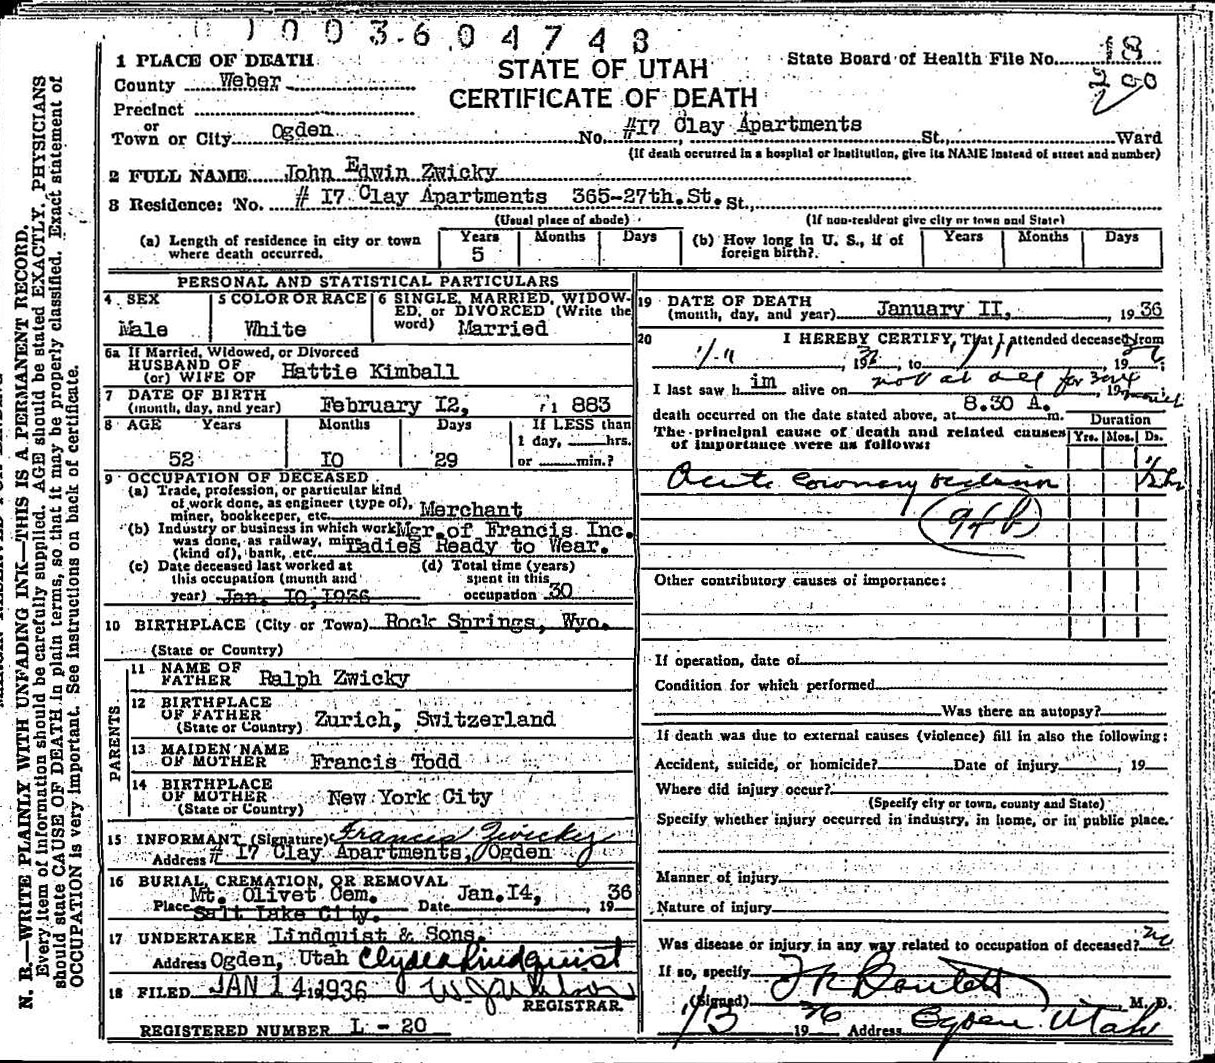 003604748
1 PLACE OF DEATH
STATE OF UTAH
CERTIFICATE OF DEATH
State Board of Health File No. 18
200
County Weber
Precinct
or
Town or City Ogden No. #I7 Clay Apartments St., Ward
(If death occurred in a hospital or institution, give its NAME instead of street and number)
2 FULL NAME John Edwin Zwicky
3 Residence: No. # I7 Clay Apartments 365-27th.St. St.,
(Usual place of abode) (If non-resident give city or town and State)
(a) Length of residence in city or town where death occurred. Years 5 Months Days (b) How long in U. S., if of foreign birth? Years Months Days
PERSONAL AND STATISTICAL PARTICULARS
4 SEX Male
5 COLOR OR RACE White
6 SINGLE, MARRIED, WIDOWED, or DIVORCED (Write the word) Married
6a If Married, Widowed, or Divorced
HUSBAND OF
(or) WIFE OF Hattie Kimball
7 DATE OF BIRTH
(month, day, and year) February I2, 1883
8 AGE Years Months Days If LESS than
1 day, hrs.
52 IO 29 or min.?
9 OCCUPATION OF DECEASED
(a) Trade, profession, or particular kind
of work done, as engineer (type of),
miner, bookkeeper, etc. Merchant
(b) Industry or business in which work Mgr.of Francis Inc.
was done, as railway, mine
(kind of), bank, etc. Ladies Ready to Wear.
(c) Date deceased last worked at
this occupation (month and
year) Jan. IO,I936
(d) Total time (years)
spent in this
occupation 30
10 BIRTHPLACE (City or Town) Rock Springs, Wyo.
(State or Country)
PARENTS
11 NAME OF
FATHER Ralph Zwicky
12 BIRTHPLACE
OF FATHER Zurich, Switzerland
(State or Country)
13 MAIDEN NAME
OF MOTHER Francis Todd
14 BIRTHPLACE
OF MOTHER New York City
(State or Country)
15 INFORMANT (Signature) Francis Zwicky
Address # I7 Clay Apartments, Ogden
16 BURIAL, CREMATION, OR REMOVAL
Place Mt. Olivet Cem. Date Jan.I4, 1936
Salt Lake City.
17 UNDERTAKER Lindquist & Sons.
Address Ogden, Utah Clyde Lindquist
18 FILED JAN 14 1936
REGISTRAR.
REGISTERED NUMBER L - 20
19 DATE OF DEATH
(month, day, and year) January II, 1936
20 I HEREBY CERTIFY, That I attended deceased from
1/11, 1936, to 1/11, 1936.
I last saw him alive on not at all for 3 or 4, 19
death occurred on the date stated above, at 8.30 A. m.
Duration
The principal cause of death and related causes
of importance were as follows: Yrs. Mos. Ds.
Acute coronary occlusion 1/2 hr
94b
Other contributory causes of importance:
If operation, date of
Condition for which performed
Was there an autopsy?
If death was due to external causes (violence) fill in also the following:
Accident, suicide, or homicide? Date of injury, 19
Where did injury occur?
(Specify city or town, county and State)
Specify whether injury occurred in industry, in home, or in public place.
Manner of injury
Nature of injury
Was disease or injury in any way related to occupation of deceased? no
If so, specify
(Signed) M. D.
1/13 1936 Address Ogden Utah
N. B.—WRITE PLAINLY WITH UNFADING INK—THIS IS A PERMANENT RECORD.
Every item of information should be carefully supplied. AGE should be stated EXACTLY. PHYSICIANS
should state CAUSE OF DEATH in plain terms, so that it may be properly classified. Exact statement of
OCCUPATION is very important. See instructions on back of certificate.